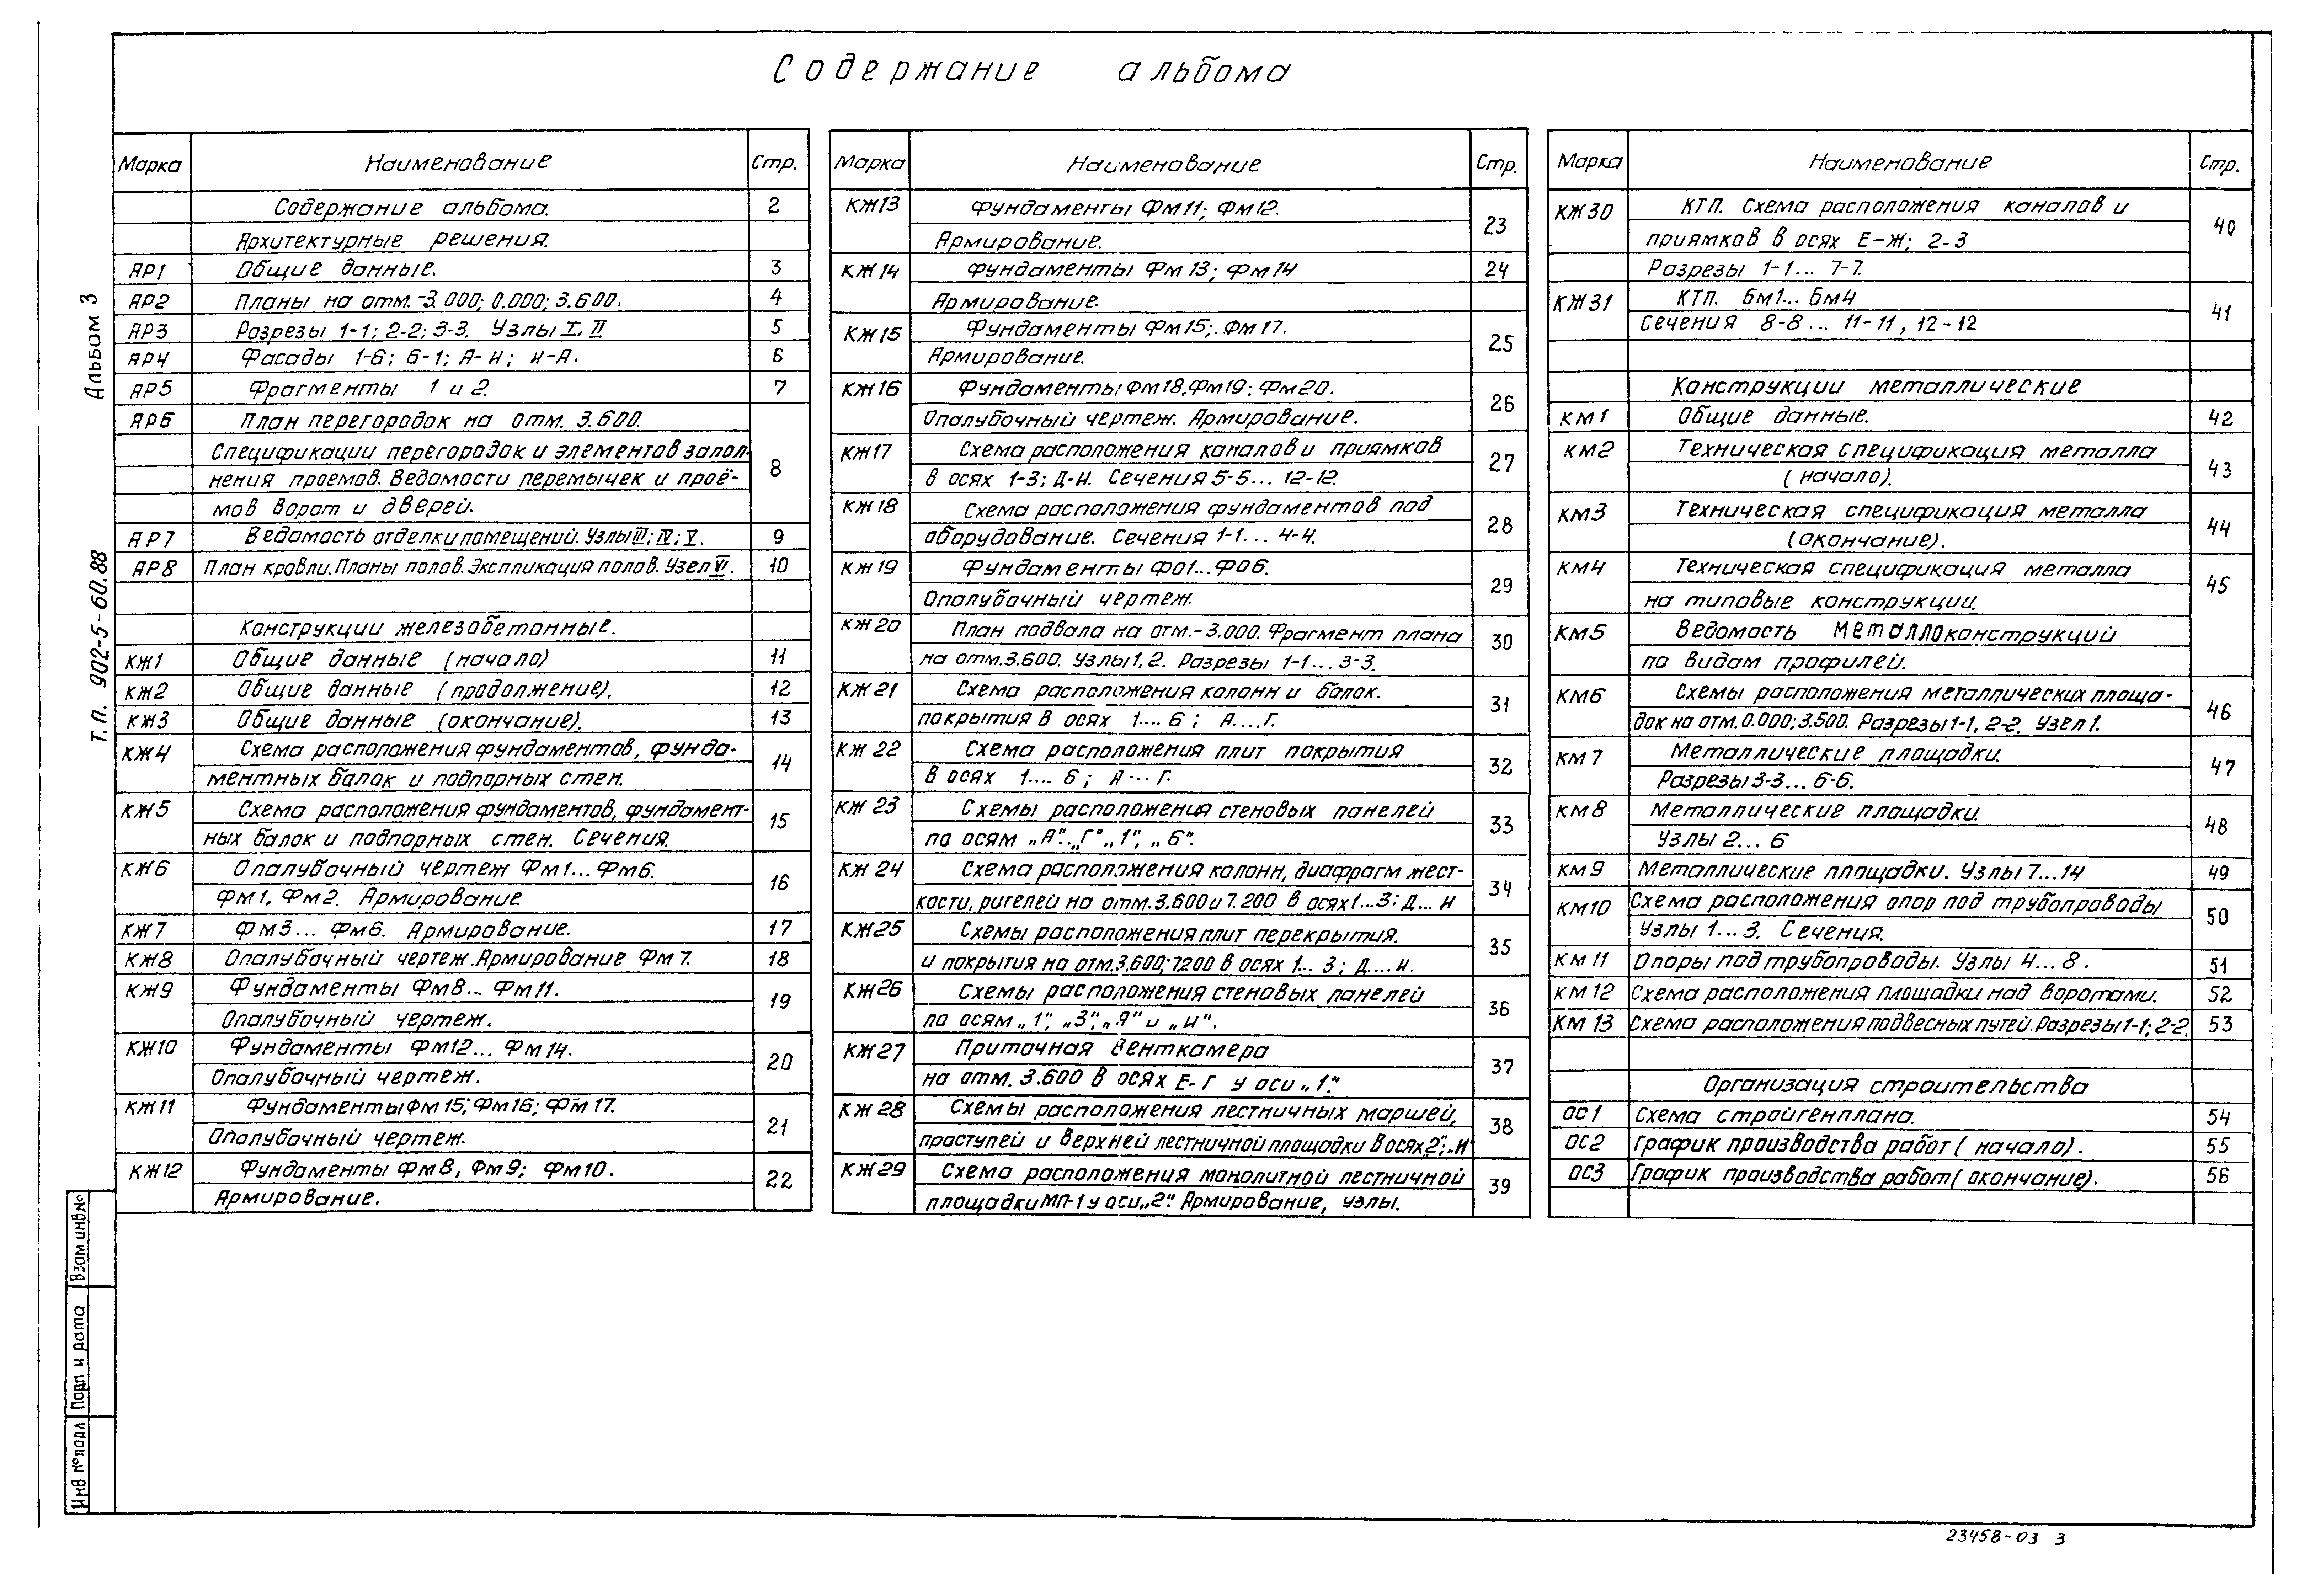 Содержание альбома
Марка Наименование Стр.
Содержание альбома. 2
Архитектурные решения.
АР1 Общие данные. 3
АР2 Планы на отм.-3.000; 0.000; 3.600. 4
АР3 Разрезы 1-1; 2-2; 3-3. Узлы I, II 5
АР4 Фасады 1-6; 6-1; А-И; И-А. 6
АР5 Фрагменты 1 и 2. 7
АР6 План перегородок на отм. 3.600.
Спецификации перегородок и элементов запол-
нения проемов. Ведомости перемычек и проё- 8
мов ворот и дверей.
АР7 Ведомость отделки помещений. Узлы III; IV; V. 9
АР8 План кровли. Планы полов. Экспликация полов. Узел VI. 10
Конструкции железобетонные.
КЖ1 Общие данные (начало) 11
КЖ2 Общие данные (продолжение). 12
КЖ3 Общие данные (окончание). 13
КЖ4 Схема расположения фундаментов, фунда-
ментных балок и подпорных стен. 14
КЖ5 Схема расположения фундаментов, фундамент-
ных балок и подпорных стен. Сечения. 15
КЖ6 Опалубочный чертеж Фм1...Фм6.
Фм1, Фм2. Армирование 16
КЖ7 Фм3... Фм6. Армирование. 17
КЖ8 Опалубочный чертеж. Армирование Фм7. 18
КЖ9 Фундаменты Фм8... Фм11.
Опалубочный чертеж. 19
КЖ10 Фундаменты Фм12... Фм14.
Опалубочный чертеж. 20
КЖ11 Фундаменты Фм15; Фм16; Фм17.
Опалубочный чертеж. 21
КЖ12 Фундаменты Фм8, Фм9; Фм10.
Армирование. 22
Марка Наименование Стр.
КЖ13 Фундаменты Фм11; Фм12.
Армирование. 23
КЖ14 Фундаменты Фм13; Фм14 24
Армирование.
КЖ15 Фундаменты Фм15; Фм17.
Армирование. 25
КЖ16 Фундаменты Фм18, Фм19; Фм20.
Опалубочный чертеж. Армирование. 26
КЖ17 Схема расположения каналов и приямков
в осях 1-3; Д-И. Сечения 5-5... 12-12. 27
КЖ18 Схема расположения фундаментов под
оборудование. Сечения 1-1... 4-4. 28
КЖ19 Фундаменты Фо1...Фо6.
Опалубочный чертеж. 29
КЖ20 План подвала на отм.-3.000. Фрагмент плана
на отм.3.600. Узлы 1, 2. Разрезы 1-1...3-3. 30
КЖ21 Схема расположения колонн и балок.
покрытия в осях 1.... 6 ; А....Г. 31
КЖ22 Схема расположения плит покрытия
в осях 1.... 6 ; А... Г. 32
КЖ23 Схемы расположения стеновых панелей
по осям „А"...„Г" „1", „6". 33
КЖ24 Схема расположения колонн, диафрагм жест-
кости, ригелей на отм.3.600 и 7.200 в осях 1...3; Д... И 34
КЖ25 Схемы расположения плит перекрытия.
и покрытия на отм.3.600; 7.200 в осях 1... 3; Д....И. 35
КЖ26 Схемы расположения стеновых панелей
по осям „1", „3", „Я" и „И". 36
КЖ27 Приточная венткамера
на отм. 3.600 в осях Е-Г у оси „1." 37
КЖ28 Схемы расположения лестничных маршей,
проступей и верхней лестничной площадки в осях „2"; „И" 38
КЖ29 Схема расположения монолитной лестничной
площадки МП-1 у оси „2". Армирование, узлы. 39
Марка Наименование Стр.
КЖ30 КТП. Схема расположения каналов и
приямков в осях Е-Ж; 2-3 40
Разрезы 1-1... 7-7.
КЖ31 КТП. Бм1... Бм4
Сечения 8-8... 11-11, 12-12 41
Конструкции металлические
КМ1 Общие данные. 42
КМ2 Техническая спецификация металла
(начало). 43
КМ3 Техническая спецификация металла
(окончание). 44
КМ4 Техническая спецификация металла
на типовые конструкции. 45
КМ5 Ведомость металлоконструкций
по видам профилей.
КМ6 Схемы расположения металлических площа-
док на отм.0.000; 3.500. Разрезы 1-1, 2-2. Узел 1. 46
КМ7 Металлические площадки.
Разрезы 3-3... 6-6. 47
КМ8 Металлические площадки.
Узлы 2... 6 48
КМ9 Металлические площадки. Узлы 7...14 49
КМ10 Схема расположения опор под трубопроводы
Узлы 1...3. Сечения. 50
КМ11 Опоры под трубопроводы. Узлы 4... 8. 51
КМ12 Схема расположения площадки над воротами. 52
КМ13 Схема расположения подвесных путей. Разрезы 1-1; 2-2. 53
Организация строительства
ОС1 Схема стройгенплана. 54
ОС2 График производства работ (начало). 55
ОС3 График производства работ (окончание). 56
Альбом 3
Т.П. 902-5-60.88
Взам инв №
Подп и дата
Инв № подл
23458-03 3